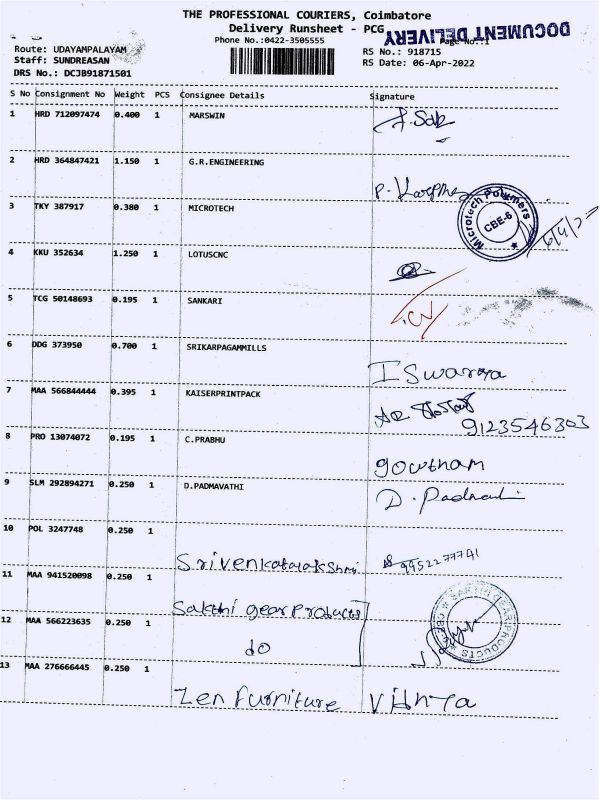 THE PROFESSIONAL COURIERS, Coimbatore
Delivery Runsheet - PCG
DOCUMENT DELIVERY
Phone No.:0422-3505555
Page No.:1
Route: UDAYAMPALAYAM
RS No.: 918715
Staff: SUNDREASAN
RS Date: 06-Apr-2022
DRS No.: DCJB91871501
S No Consignment No Weight PCS Consignee Details Signature
1 HRD 712097474 0.400 1 MARSWIN
2 HRD 364847421 1.150 1 G.R.ENGINEERING
3 TKY 387917 0.380 1 MICROTECH
Microtech Polymers
CBE-6
4 KKU 352634 1.250 1 LOTUSCNC
5 TCG 50148693 0.195 1 SANKARI
6 DDG 373950 0.700 1 SRIKARPAGAMMILLS
Iswarya
7 MAA 566844444 0.395 1 KAISERPRINTPACK
9123546303
8 PRO 13074072 0.195 1 C.PRABHU
gowtham
9 SLM 292894271 0.250 1 D.PADMAVATHI
D.
10 POL 3247748 0.250 1
Srivenkatalakshmi 9952277741
11 MAA 941520098 0.250 1
Sakthi gear Products
SAKTHI GEAR PRODUCTS
12 MAA 566223635 0.250 1
do
13 MAA 276666445 0.250 1
Zen Furniture Vidhya